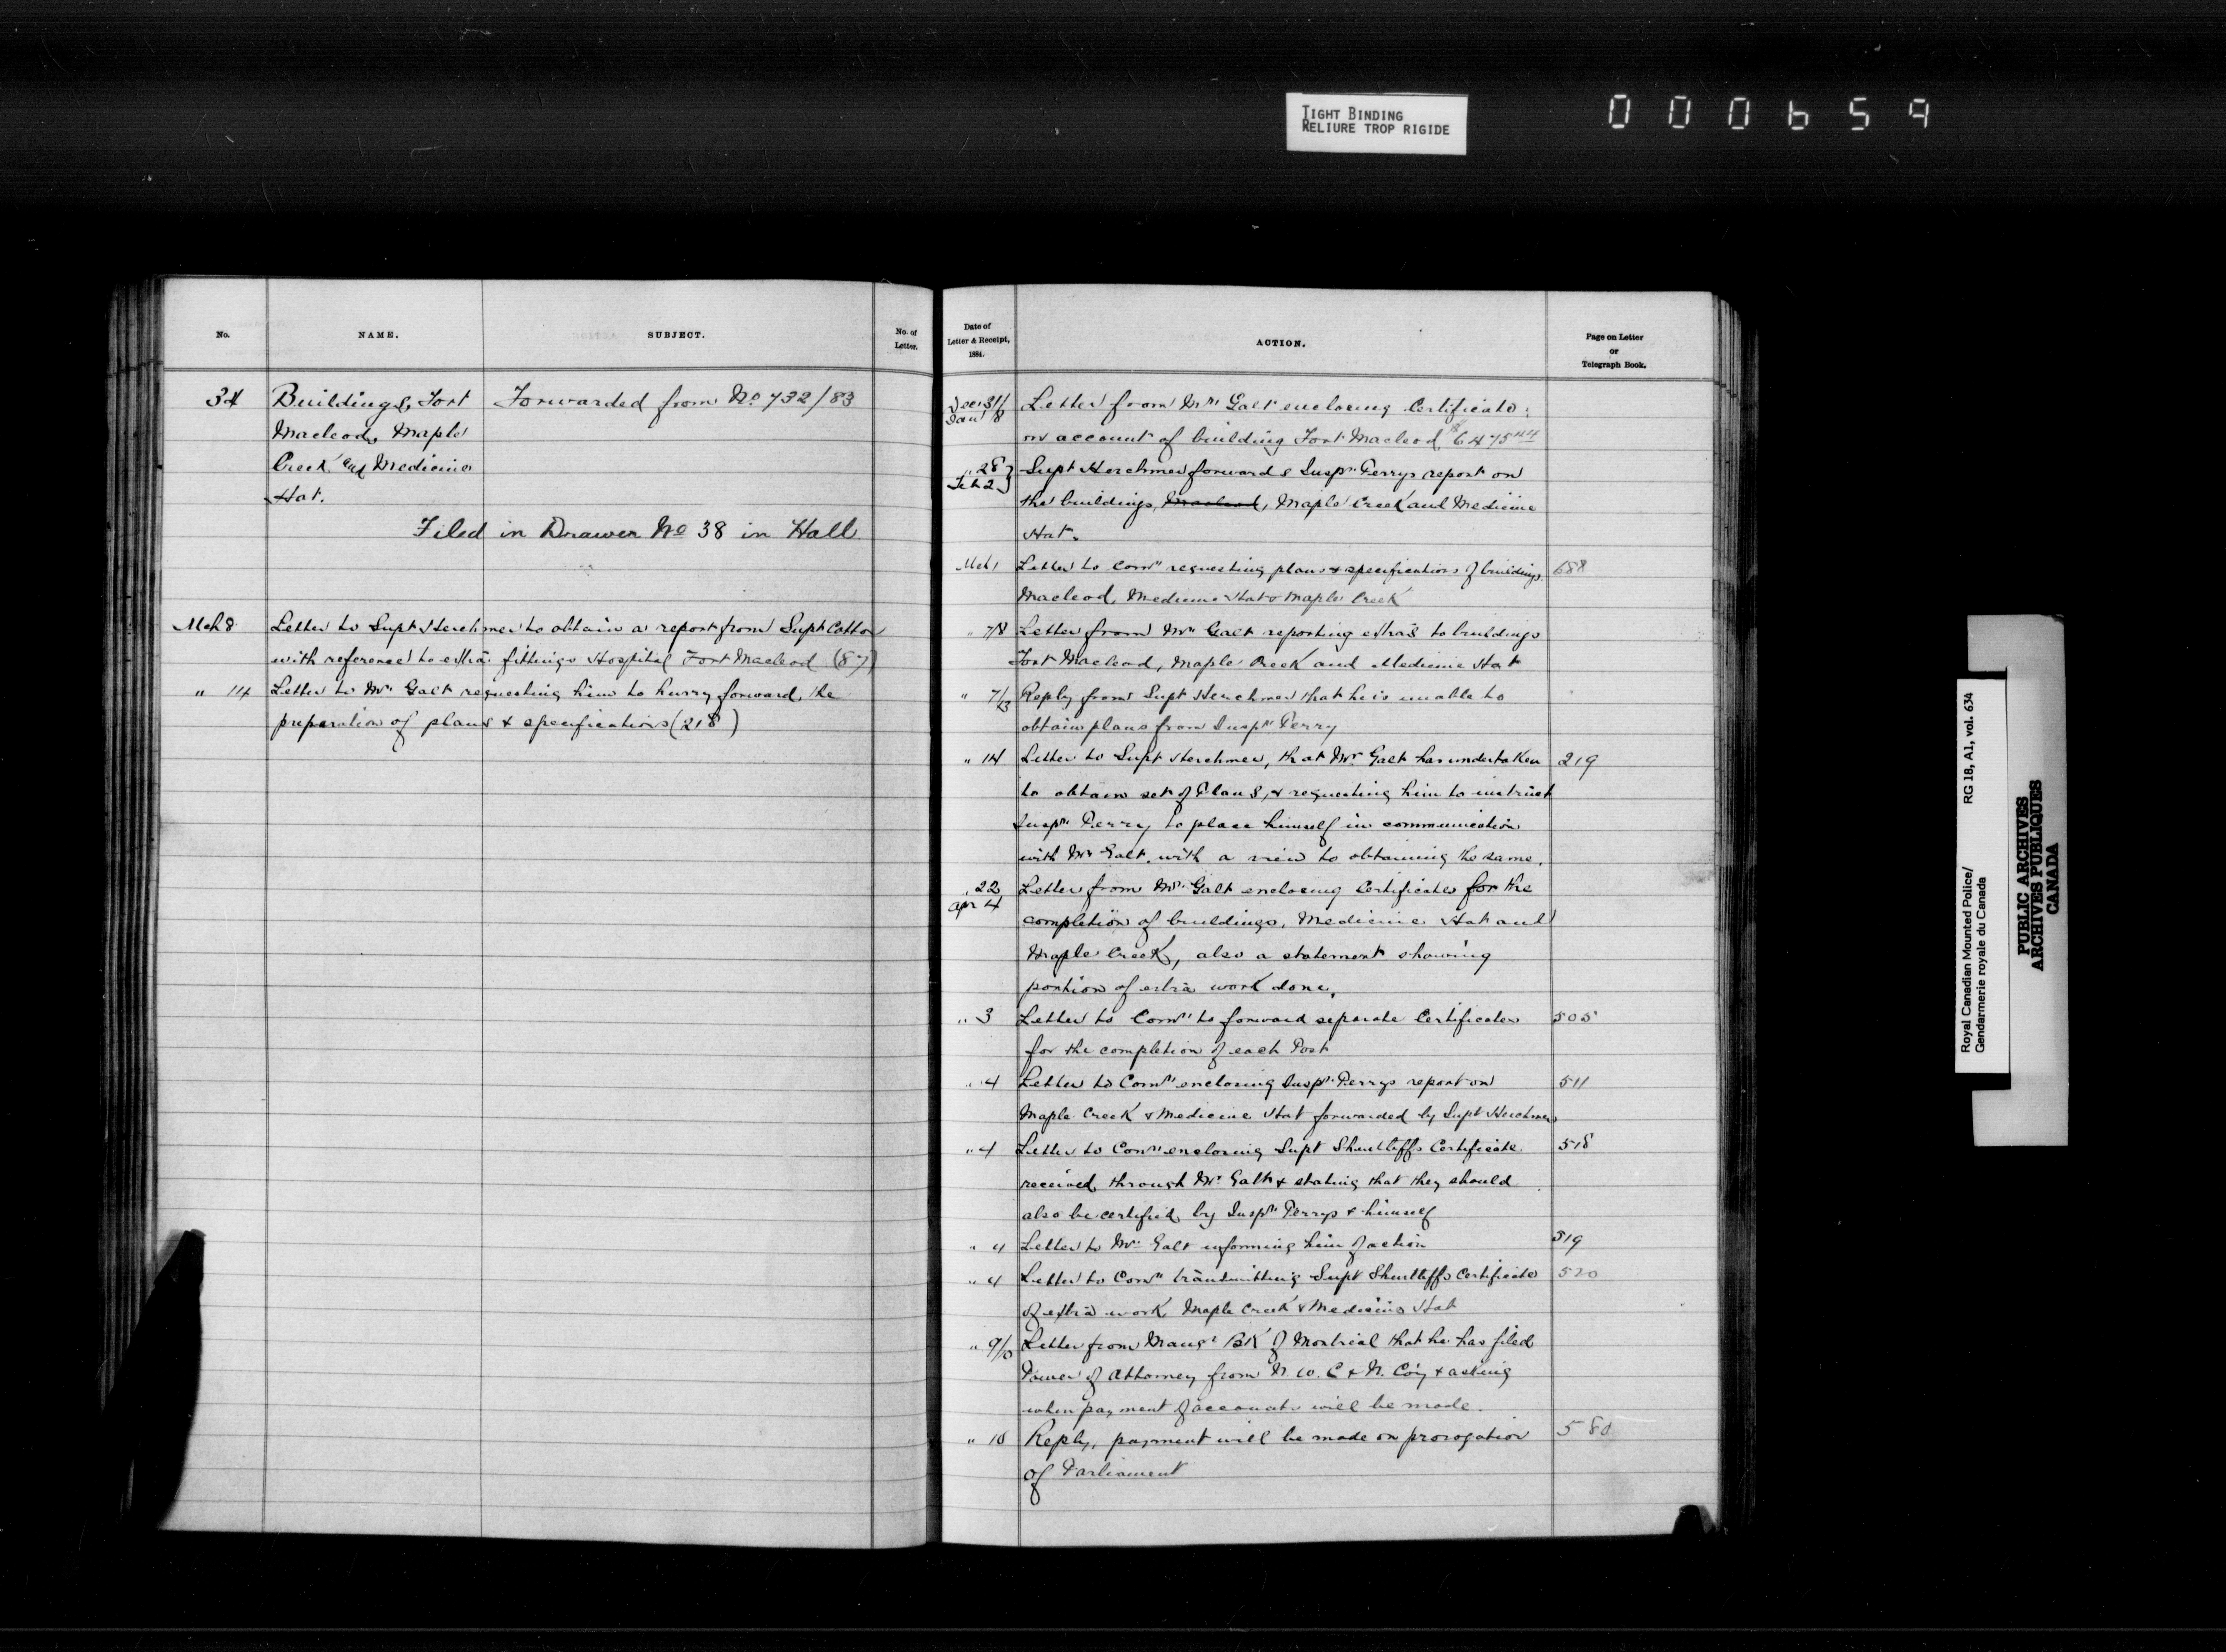 TIGHT BINDING
RELIURE TROP RIGIDE
000659
No.
NAME.
SUBJECT.
No. of
Letter.
34 Buildings, Fort Forwarded from No 732/83
Macleod, Maple
Creek, and Medicine
Hat.
Filed in Drawer No 38 in Hall
Mch 8 Letter to Supt Herchmer to obtain a report from Supt Cotton
with reference to extra fittings Hospital Fort Macleod (87)
" 14 Letter to Mr Galt requesting him to hurry forward, the
preparation of plans & specifications (218)
Date of
Letter & Receipt,
1884.
ACTION.
Page on Letter
or
Telegraph Book.
Dec 31/
Jan 8 Letter from Mr Galt enclosing Certificate
on account of building Fort Macleod $6475 44
" 28
Feb 2 Supt Herchmer forwards Inspr Perrys report on
the buildings, Macleod, Maple Creek and Medicine
Hat.
Mch 1 Letter to Comr requesting plans & specifications of buildings 688
Macleod, Medicine Hat & Maple Creek
" 7/8 Letter from Mr Galt reporting extras to buildings
Fort Macleod, Maple Creek and Medicine Hat
" 7/13 Reply from Supt Herchmer that he is unable to
obtain plans from Inspr Perry
" 14 Letter to Supt Herchmer, that Mr Galt has undertaken 219
to obtain set of Plans, & requesting him to instruct
Inspr Perry to place himself in communication
with Mr Galt, with a view to obtaining the same.
" 22
Apr 4 Letter from Mr Galt enclosing Certificates for the
completion of buildings, Medicine Hat and
Maple Creek, also a statement showing
portion of extra work done.
" 3 Letter to Comr to forward separate Certificates 505
for the completion of each Post
" 4 Letter to Comr enclosing Inspr Perrys report on 511
Maple Creek & Medicine Hat forwarded by Supt Herchmer
" 4 Letter to Comr enclosing Supt Shurtliffs Certificate 518
received through Mr Galt & stating that they should
also be certified by Inspr Perrys & himself
" 4 Letter to Mr Galt informing him of action 519
" 4 Letter to Comr transmitting Supt Shurtliffs Certificate 520
of extra work, Maple Creek & Medicine Hat
" 9/ Letter from Mangr Bk of Montreal that he has filed
Power of Attorney from N. W. C & N. Coy & asking
when payment of accounts will be made.
" 10 Reply, payment will be made on prorogation 580
of Parliament
Royal Canadian Mounted Police/ RG 18, A1, vol. 634
Gendarmerie royale du Canada
PUBLIC ARCHIVES
ARCHIVES PUBLIQUES
CANADA